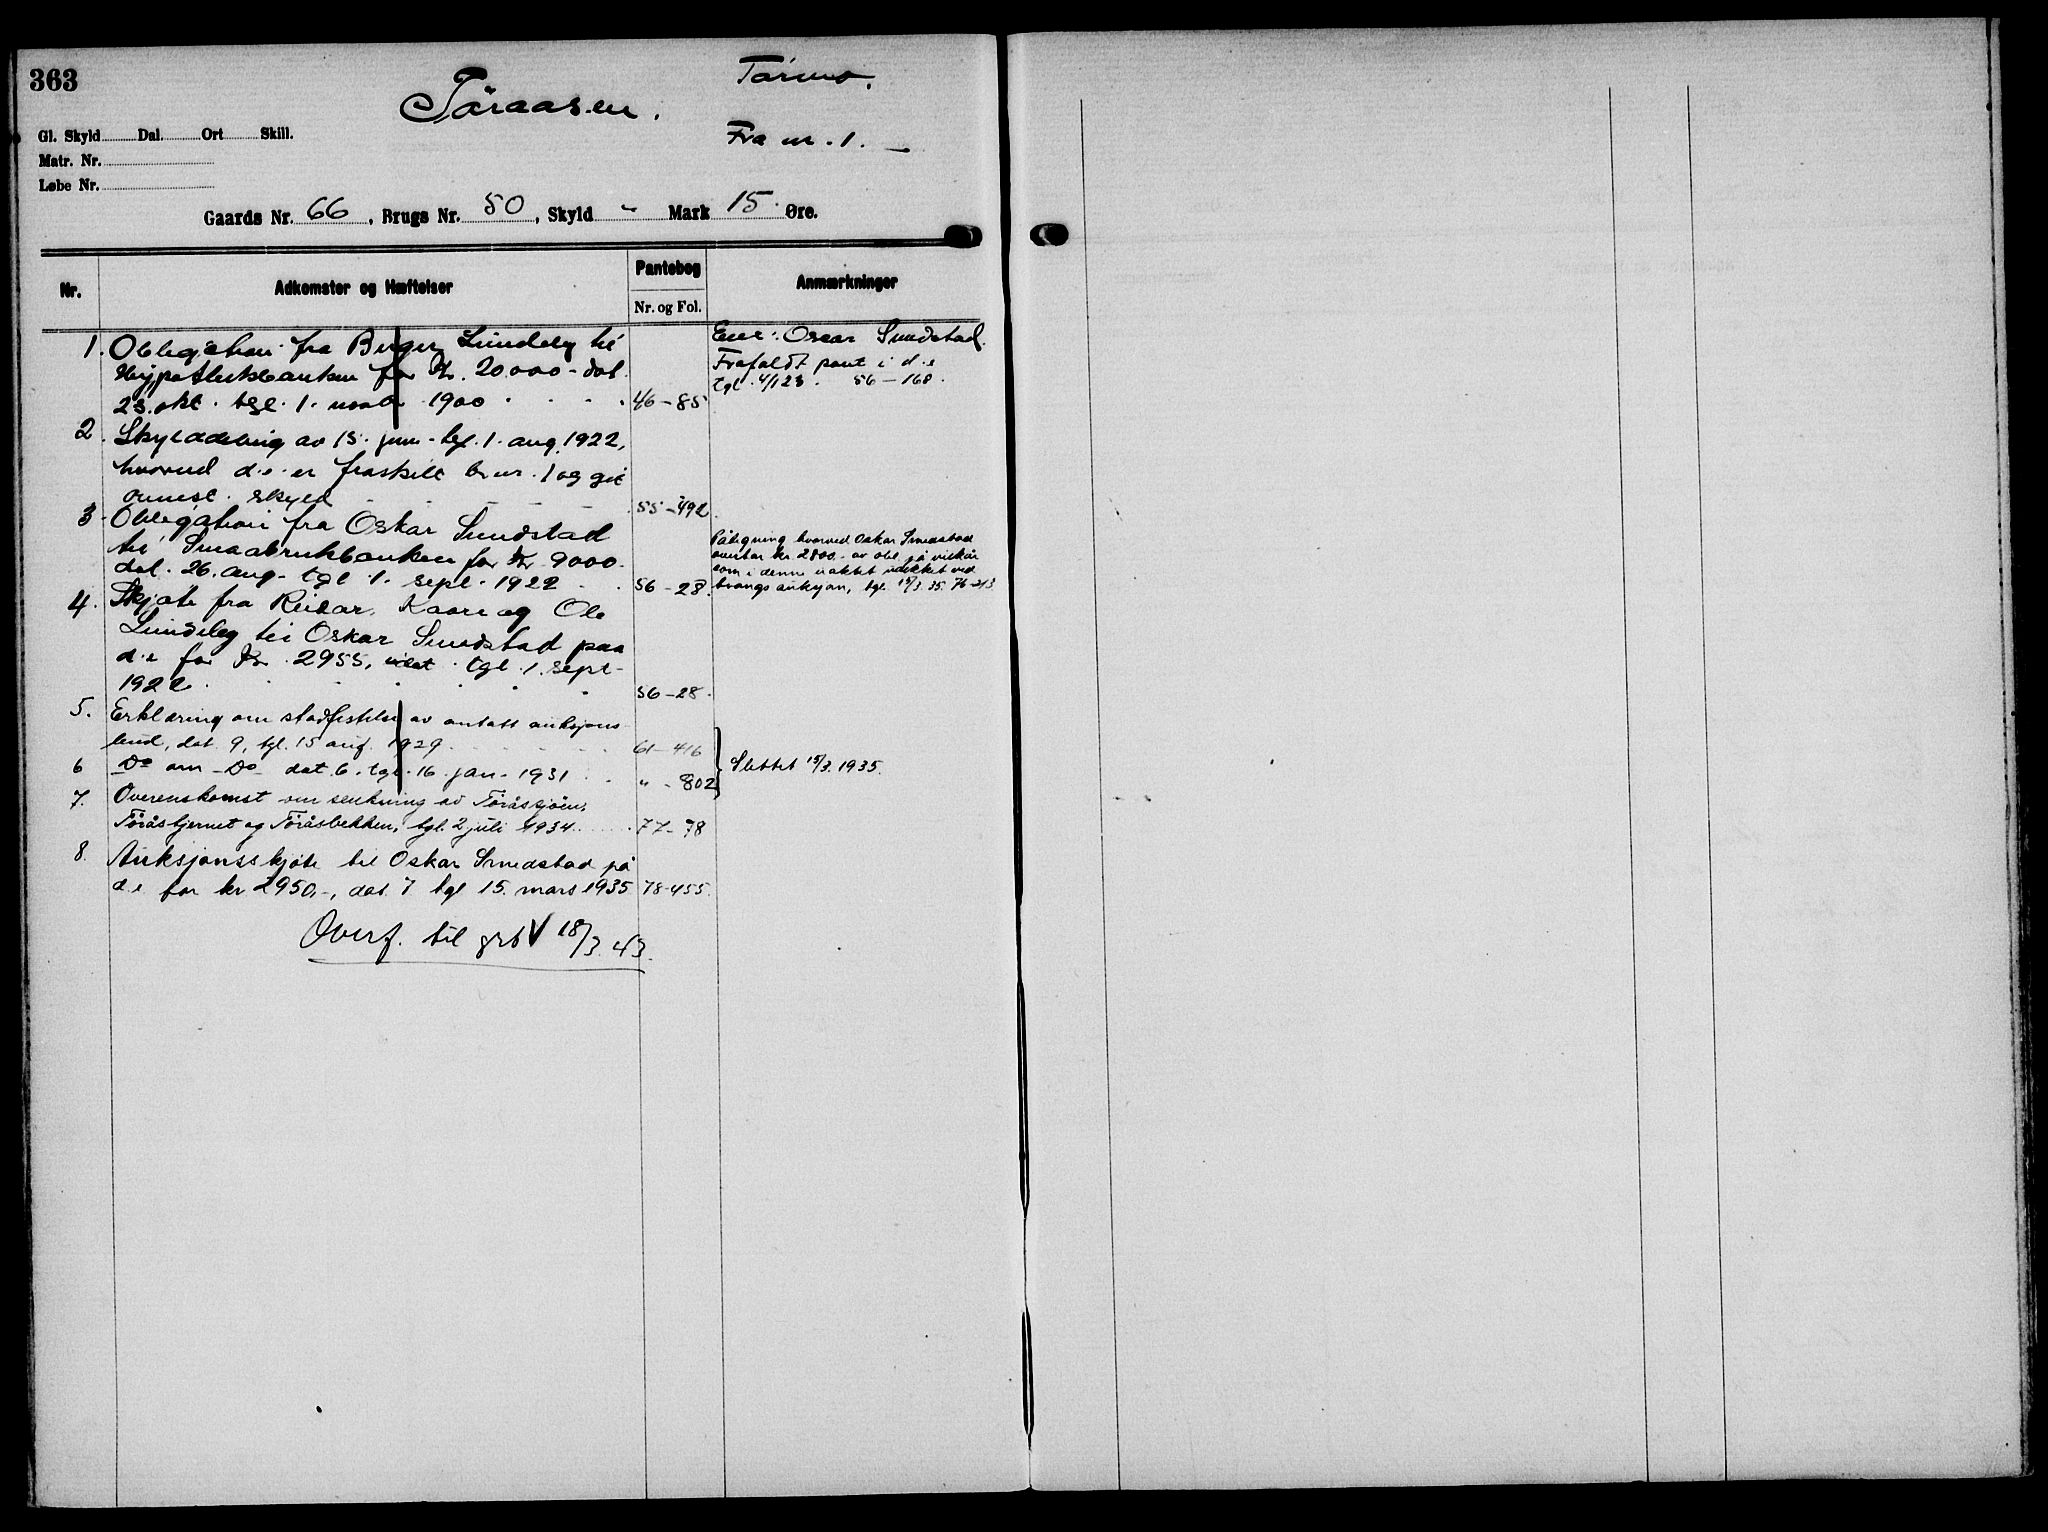 363
Tøraasen.
Tørmo.
Fra nr. 1. —
Gl. Skyld Dal Ort Skill.
Matr. Nr.
Løbe Nr.
Gaards Nr. 66, Brugs Nr. 50, Skyld " Mark 15. Øre.
Nr.
Adkomster og Hæftelser
Pantebog
Nr. og Fol.
Anmærkninger
1. Obligation fra Birger Lundeby til
Hypothekbanken for Kr. 20.000 - dat.
23. okt. tgl. 1. novbr 1900 46-85
Eier: Oscar Smedstad.
Frafaldt pant i d.e
tgl. 4/1 23. 56-168.
2. Skylddeling av 15. juni - tgl. 1. aug. 1922,
hvorved d.e. er fraskilt br. nr. 1 og git
ovenst. skyld 55-492
3. Obligation fra Oskar Smedstad
til Smaabrukbanken for Kr 9000.
dat. 26. aug. tgl 1. sept. 1922 56-28.
Påtegning hvorved Oskar Smedstad
overtar kr 2800.- av obl. på vilkår
som i denne uaktet udekket ved
tvangsauksjon, tgl. 15/3. 35. 76-213
4. Skjøte fra Reidar, Kaare og Ole
Lundeby til Oskar Smedstad paa
d.e for Kr. 2955, tgl. 1. sept-
1922 56-28.
5. Erklæring om stadfestelse av antatt auksjons
bud, dat. 9, tgl. 15 aug. 1929. 61-416
6 Do om Do dat. 6. tgl. 16. jan. 1931 " - 802
Slettet 15/3. 1935.
7. Overenskomst om senkning av Töråssjöen,
Töråstjernet og Töråsbekken, tgl. 2 juli 1934 77-78
8. Auksjonsskjöte til Oskar Smedstad på
d.e for kr 2950,-, dat. 7 tgl 15. mars 1935 78-455.
Overf. til grb V 18/3. 43.